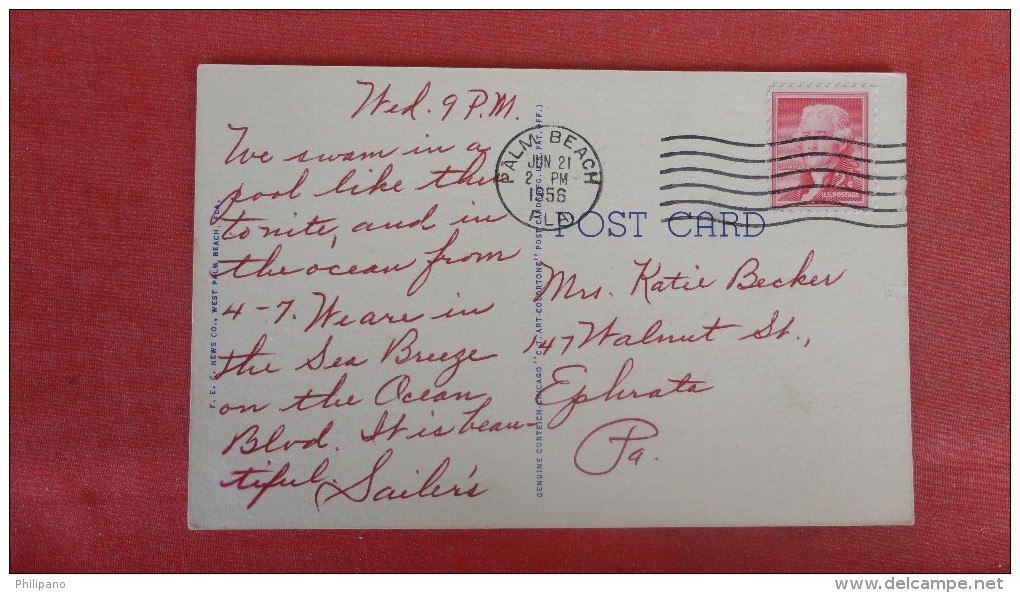 Wed. 9 P.M.
We swam in a
pool like this
tonite, and in
the ocean from
4-7. We are in
the Sea Breeze
on the Ocean
Blvd. It is beau-
tiful. Sailer's
PALM BEACH
JUN 21
2 PM
1956
FLA
U.S. POSTAGE
POST CARD
Mrs. Katie Becker
147 Walnut St.,
Ephrata
Pa.
F. E. C. NEWS CO., WEST PALM BEACH, FLA.
GENUINE CURTEICH-CHICAGO "C.T. ART-COLORTONE" POST CARD (REG. U.S. PAT. OFF.)
Philipano
www.delcampe.net